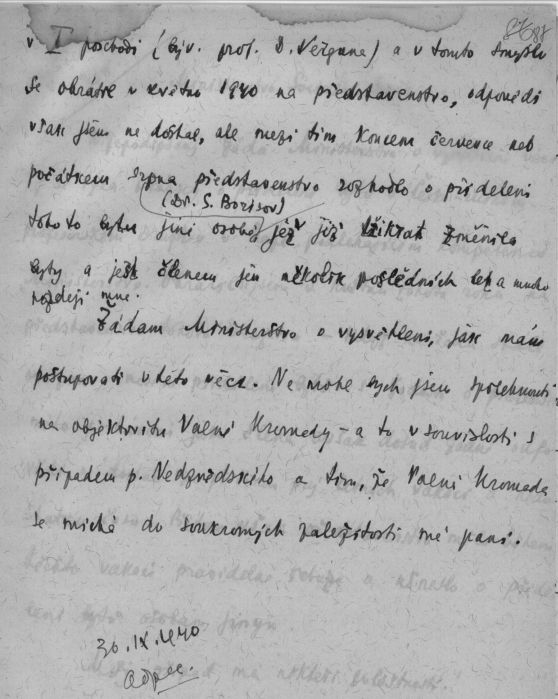 v I poschodí (býv. prof. D. Verguna) a v tomto smyslu
se obrátil v květnu 1940 na představenstvo, odpovědi
však jsem ne dostal, ale mezi tím koncem července neb
počátkem srpna představenstvo rozhodlo o přidělení
(Dr. S. Borisov)
tohoto bytu jiné osobě, jež již třikrat změnila
byty a jest členem jen několik posledních let a mnoho
pozdeji mne.
Žádam Ministerstvo o vysvětlení, jak mám
postupovati v této věci. Ne mohl bych jsem spolehnouti
na objektivitu Valné Hromady – a to v souvislosti s
případem p. Nedzvědského a tím, že Valná Hromada
se míchá do soukromých zaležitostí mé paní.
30.IX.1940